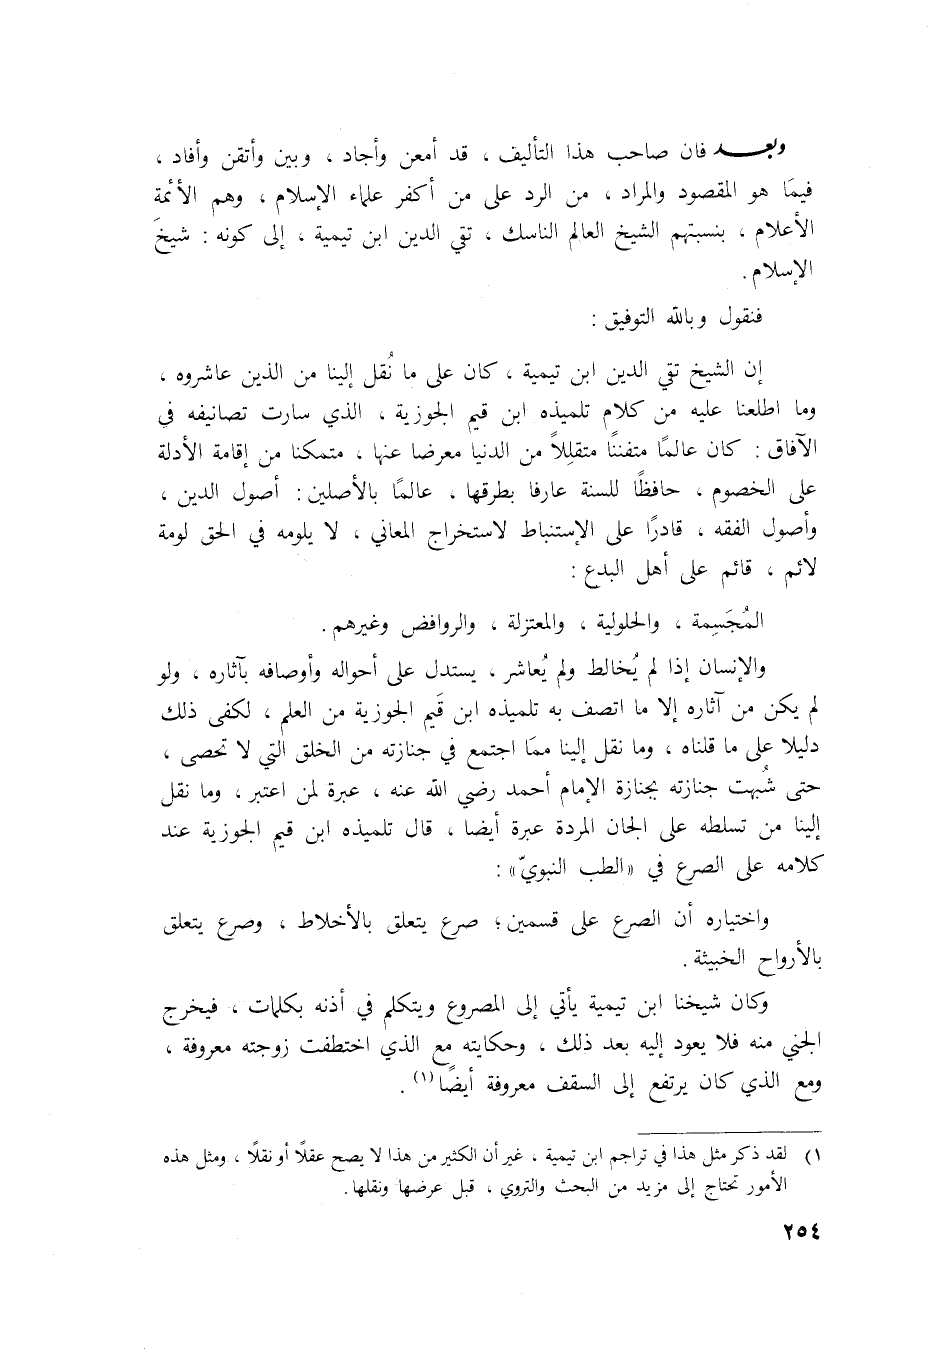 وبعـــد فان صاحب هذا التأليف ، قد أمعن وأجاد ، وبين وأتقن وأفاد ،
فيمَا هو المقصود والمراد ، من الرد على من أكفر علماء الإسلام ، وهم الأئمة
الأعلام ، بنسبتهم الشيخ العالم الناسك ، تقي الدين ابن تيمية ، إلى كونه : شيخَ
الإسلام .
فنقول وبالله التوفيق :
إن الشيخ تقي الدين ابن تيمية ، كان على ما نُقل إلينا من الذين عاشروه ،
وما اطلعنا عليه من كلام تلميذه ابن قيم الجوزية ، الذي سارت تصانيفه في
الآفاق : كان عالمًا متفننًا متقلِلاً من الدنيا معرضا عنها ، متمكنا من إقامة الأدلة
على الخصوم ، حافظًا للسنة عارفا بطرقها ، عالمًا بالأصلين : أصول الدين ،
وأصول الفقه ، قادرًا على الإستنباط لاستخراج المعاني ، لا يلومه في الحق لومة
لائم ، قائم على أهل البدع :
المُجَسِمة ، والحلولية ، والمعتزلة ، والروافض وغيرهم .
والإنسان إذا لم يُخالط ولم يُعاشر ، يستدل على أحواله وأوصافه بآثاره ، ولو
لم يكن من آثاره إلا ما اتصف به تلميذه ابن قَيم الجوزية من العلم ، لكفى ذلك
دليلا على ما قلناه ، وما نقل إلينا ممَا اجتمع في جنازته من الخلق التي لا تحصى ،
حتى شُبهت جنازته بجنازة الإمام أحمد رضي الله عنه ، عبرة لمن اعتبر ، وما نقل
إلينا من تسلطه على الجان المردة عبرة أيضا ، قال تلميذه ابن قيم الجوزية عند
كلامه على الصرع في «الطب النبويّ» :
واختياره أن الصرع على قسمين؛ صرع يتعلق بالأخلاط ، وصرع يتعلق
بالأرواح الخبيثة .
وكان شيخنا ابن تيمية يأتي إلى المصروع ويتكلم في أذنه بكلمات ، فيخرج
الجني منه فلا يعود إليه بعد ذلك ، وحكايته مع الذي اختطفت زوجته معروفة ،
ومع الذي كان يرتفع إلى السقف معروفة أيضًا(١) .
١) لقد ذكر مثل هذا في تراجم ابن تيمية ، غير أن الكثير من هذا لا يصح عقلًا أو نقلًا ، ومثل هذه
الأمور تحتاج إلى مزيد من البحث والتروي ، قبل عرضها ونقلها .
٢٥٤